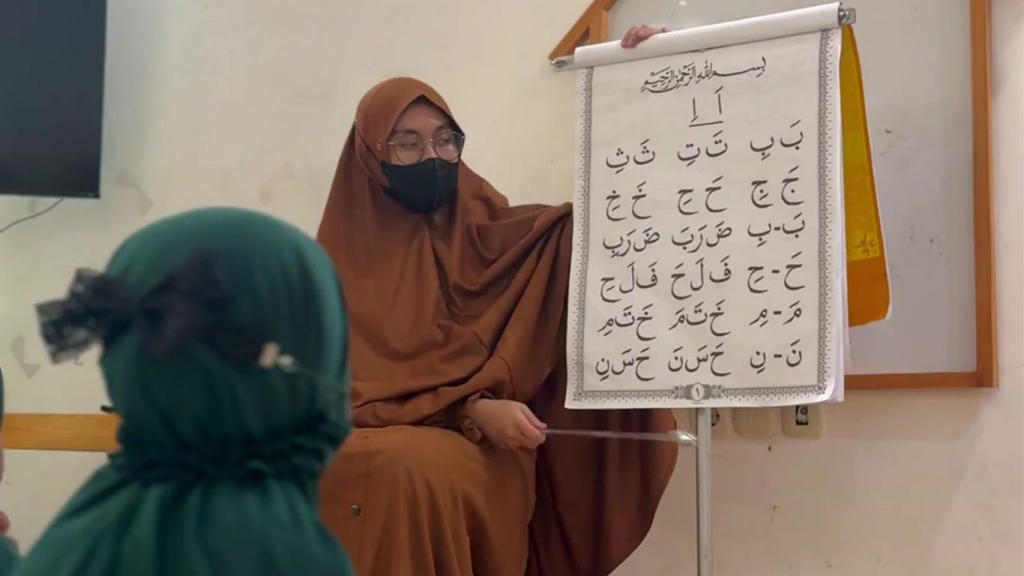 بسم الله الرحمن الرحيم
اَ اِ
بَ بِ تَ تِ ثَ ثِ
جَ جِ حَ حِ خَ خِ
بَ-بِ ضَرَبَ ضَرَبِ
حَ-حِ فَلَحَ فَلَحِ
مَ-مِ خَتَمَ خَتَمِ
نَ-نِ حَسَنَ حَسَنِ
١